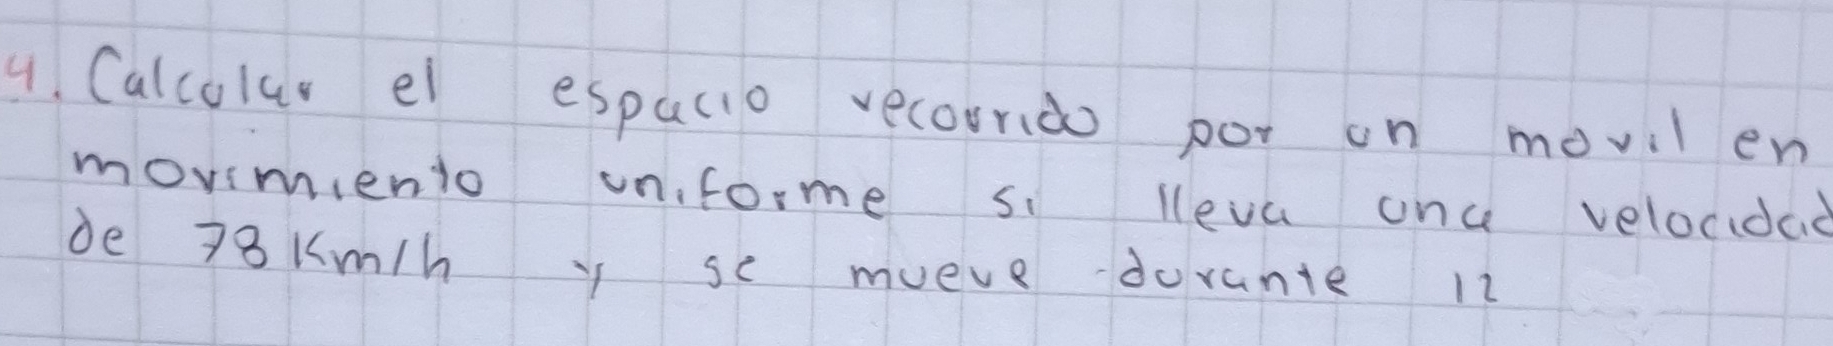 4. Calcular el espacio recorrido por un movil en
movimiento uniforme si lleva una velocidad
de 78 Km/h y se mueve durante 12